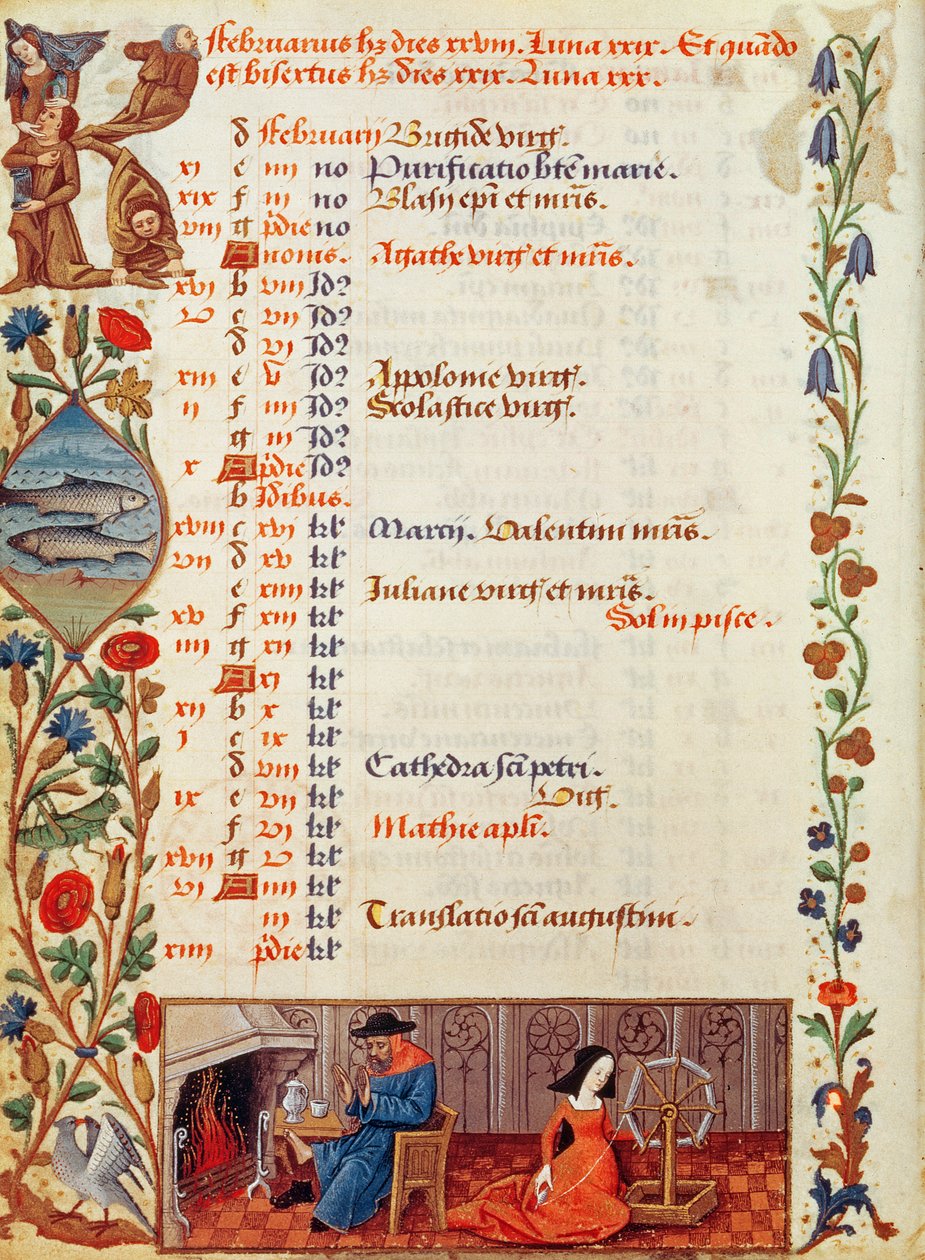 KL Februarius hz dies xxviii. Luna xxix. Et quando
est bisextus hz dies xxix. Luna xxx.
d Februarij Brigide virg.
xi e iiii no Purificatio bte marie.
xix f iii no Blasij epi et mris.
viii g pdie no
A nonis. Agathe virg et mris.
xvi b viii Id?
v c vii Id?
d vi Id?
xiii e v Id? Appolonie virg.
ii f iiii Id? Scolastice virg.
g iii Id?
x A pdie Id?
b Idibus.
xviii c xvi kl Marcij. Valentini mris.
vii d xv kl
e xiiii kl Iuliane virg et mris.
xv f xiii kl Sol in pisce.
iiii g xii kl
A xi kl
xii b x kl
j c ix kl
d viii kl Cathedra sci petri.
ix e vii kl Vig.
f vi kl Mathie apli.
xvii g v kl
vi A iiii kl
iii kl Translatio sci augustini.
xiiii pdie kl